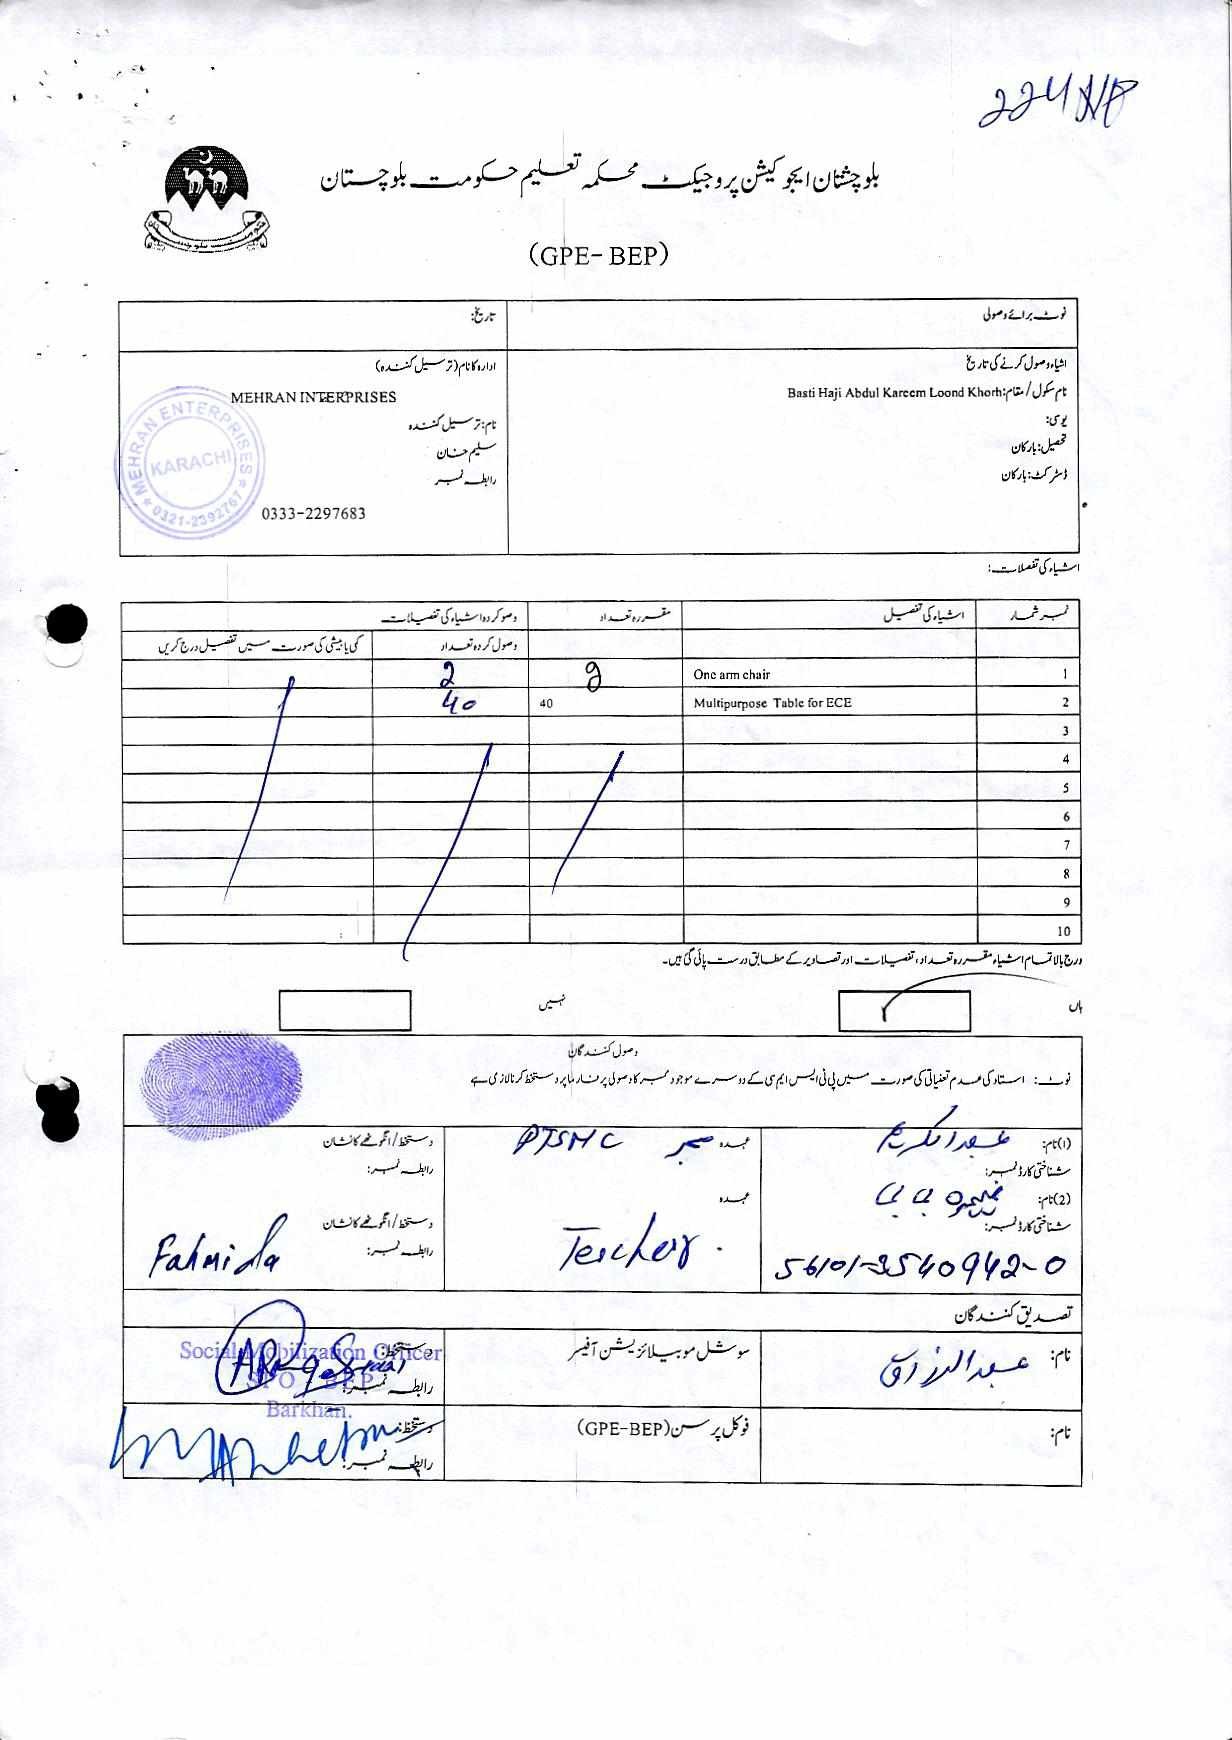 بلوچستان ایجوکیشن پروجیکٹ محکمہ تعلیم حکومت بلوچستان
(GPE- BEP)
نوٹ برائے وصولی
تاریخ:
اشیاء وصول کرنے کی تاریخ
نام سکول / مقام: Basti Haji Abdul Kareem Loond Khorh
یوسی:
تحصیل: بارکان
ڈسٹرکٹ: بارکان
ادارہ کا نام (ترسیل کنندہ)
MEHRAN INTERPRISES
نام: ترسیل کنندہ
سلیم خان
رابطہ نمبر
0333-2297683
MEHRAN ENTERPRISES
KARACHI
0321-2392767
اشیاء کی تفصلات:
نمبر شمار اشیاء کی تفصیل مقررہ تعداد وصو کردہ اشیاء کی تفصیلات
وصول کردہ تعداد کمی یا بیشی کی صورت میں تفصیل درج کریں
1 One arm chair 2 2
2 Multipurpose Table for ECE 40 40
3
4
5
6
7
8
9
10
درج بالا تمام اشیاء مقررہ تعداد، تفصیلات اور تصاویر کے مطابق درست پائی گئی ہیں۔
ہاں نہیں
وصول کنندگان
نوٹ: استاد کی عدم تعیناتی کی صورت میں پی ٹی ایس ایم سی کے دوسرے موجود ممبر کا وصولی پر فارما پر دستخط کرنا لازمی ہے
(1) نام: عبدالکریم عہدہ ممبر PTSMC دستخط / انگوٹھے کا نشان
شناختی کارڈ نمبر: رابطہ نمبر:
(2) نام: فہمیدہ بی بی عہدہ Teacher دستخط / انگوٹھے کا نشان
شناختی کارڈ نمبر: رابطہ نمبر:
56101-3540942-0 Fahmida
تصدیق کنندگان
نام: عبدالرزاق سوشل موبیلائزیشن آفیسر دستخط:
رابطہ نمبر:
Social Mobilization Officer
SPO - BEP
Barkhan.
نام: فوکل پرسن (GPE-BEP) دستخط:
رابطہ نمبر: